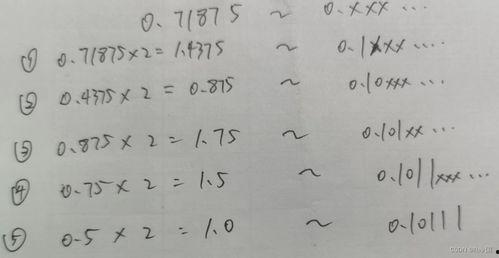 0.71875 ~ 0.xxx ...
① 0.71875×2=1.4375 ~ 0.1xxx ....
② 0.4375×2=0.875 ~ 0.10xxx ...
③ 0.875×2=1.75 ~ 0.101xx ...
④ 0.75×2=1.5 ~ 0.1011xxx ...
⑤ 0.5×2=1.0 ~ 0.10111